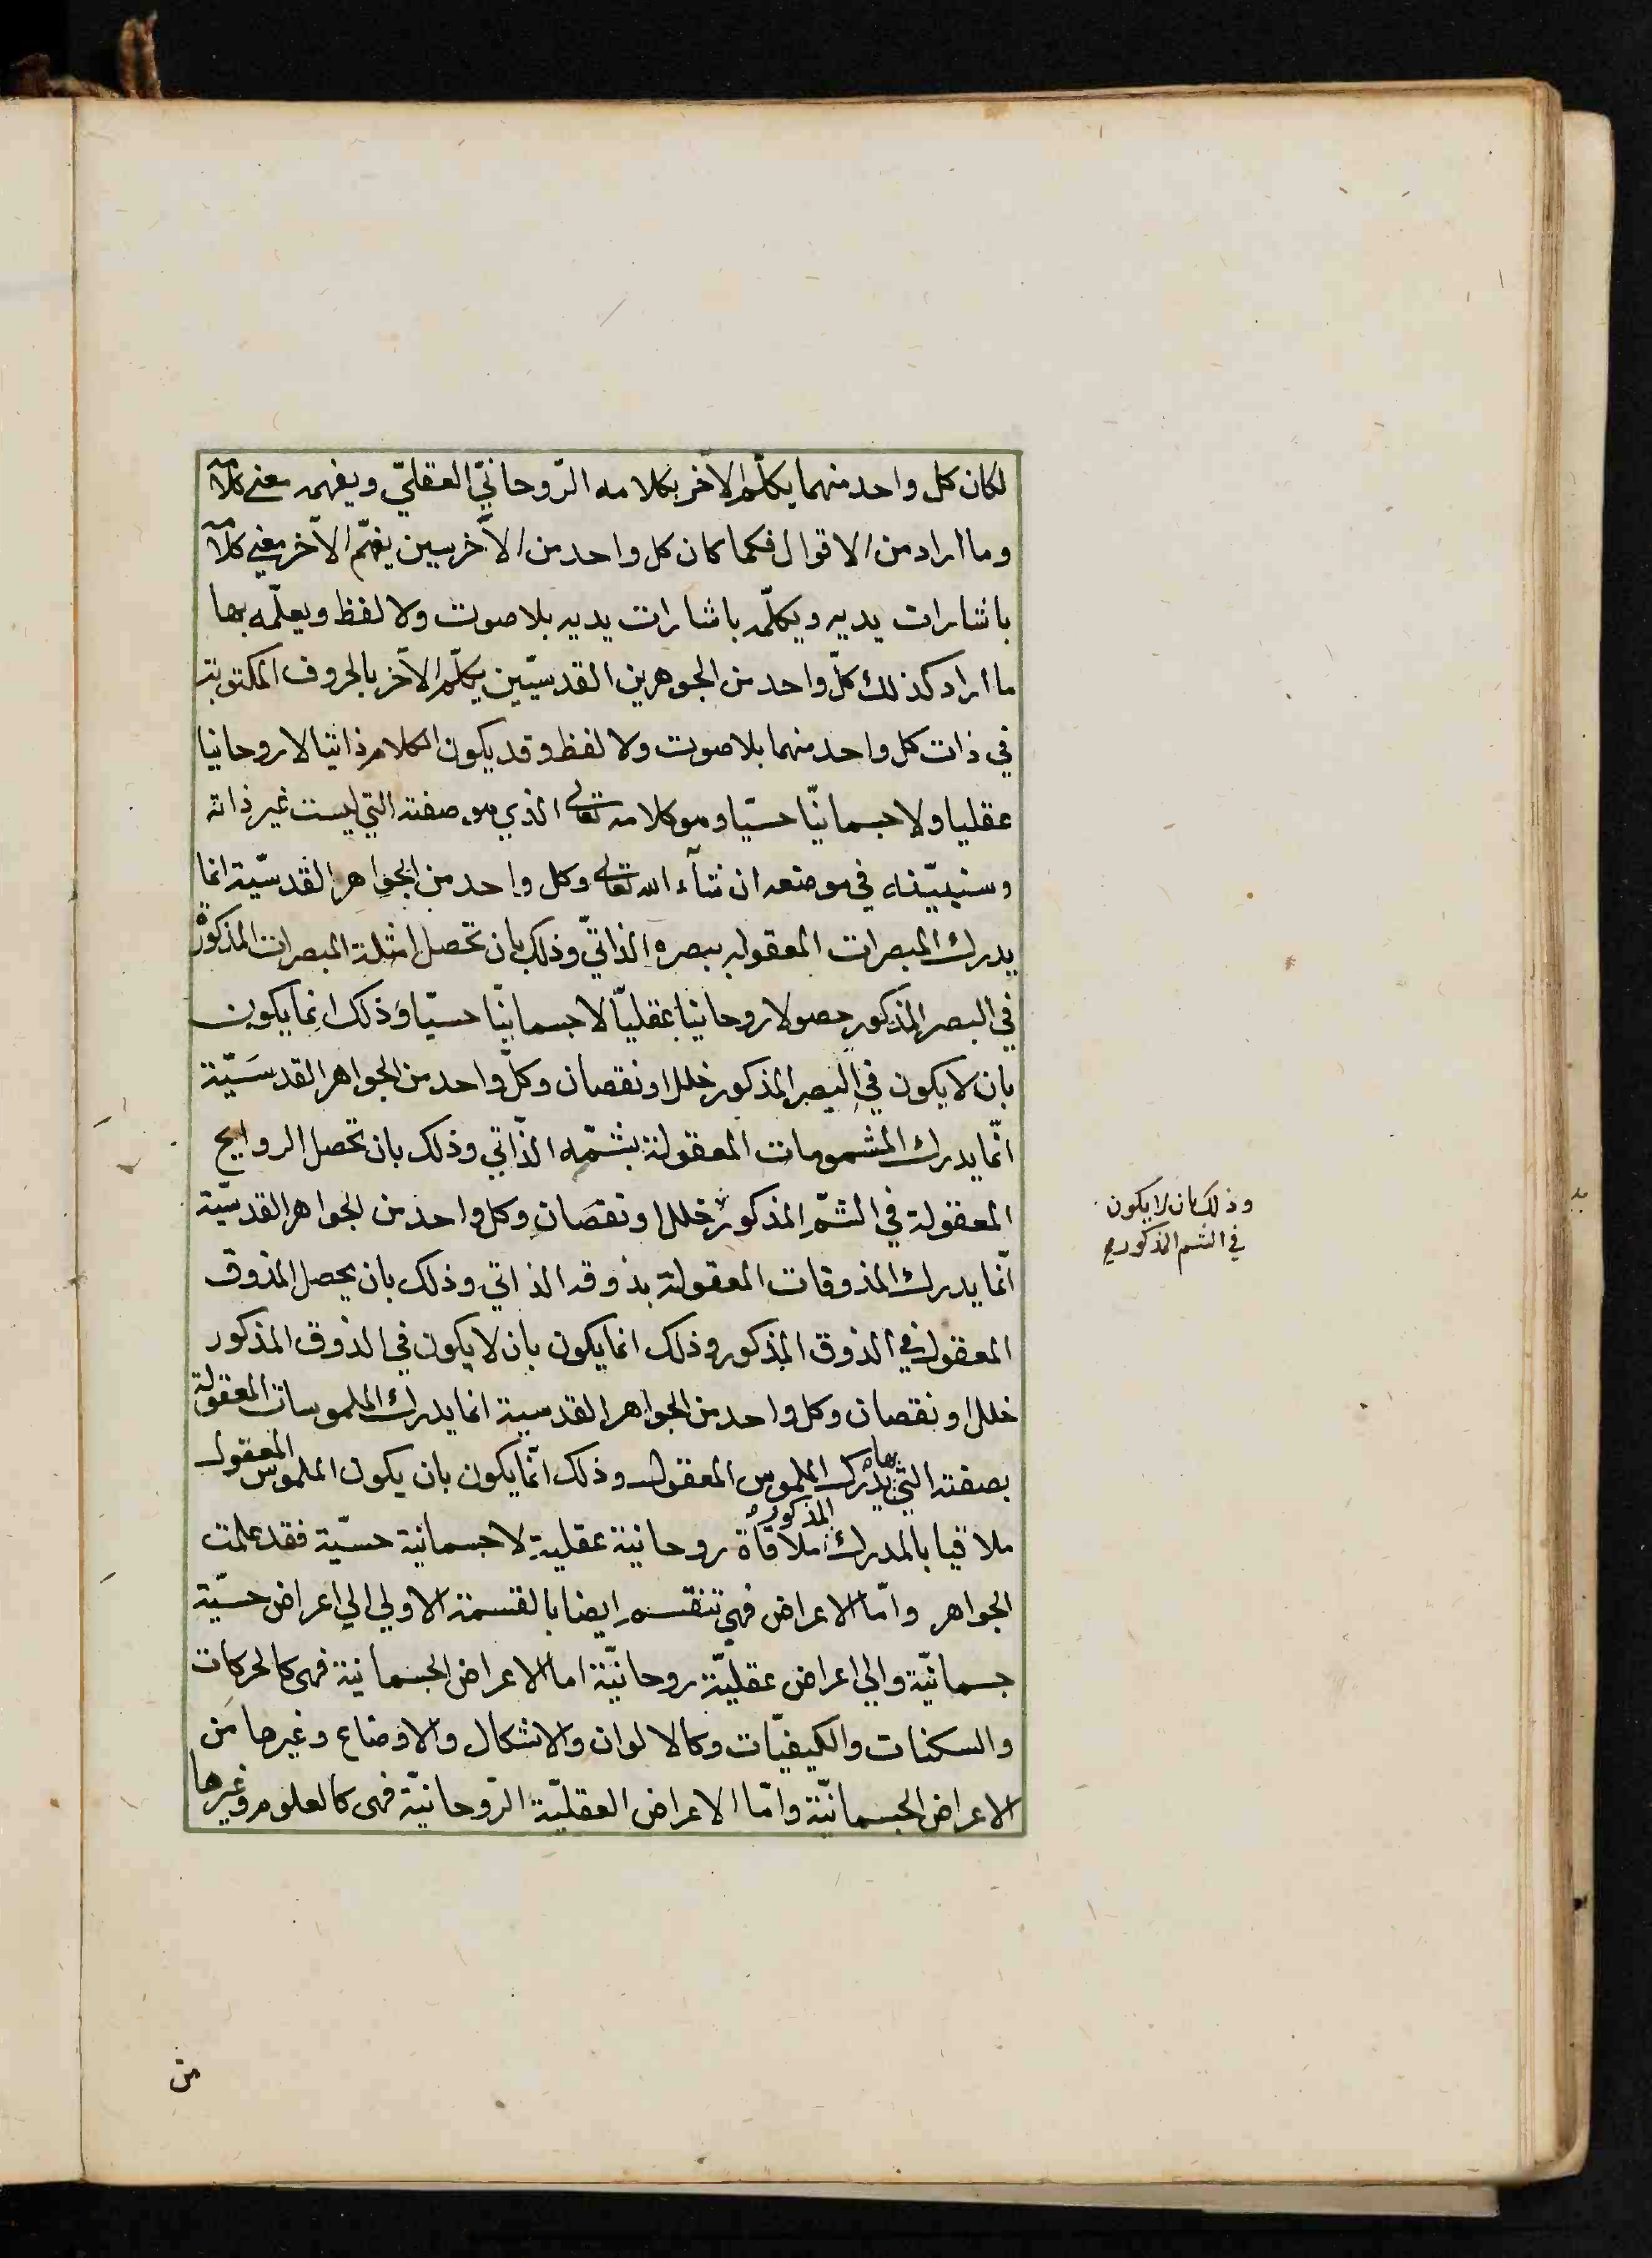 لكان كل واحد منهما يكلّم الآخر بكلامه الرّوحانيّ العقليّ ويفهمه معنى كلامه
وما اراد من الاقوال فكما كان كل واحد من الآخرسين يفهّم الآخر معنى كلامه
باشارات يديه ويكلّمه باشارات يديه بلا صوت ولا لفظ ويعلّمه بها
ما اراد كذلك كلّ واحد من الجوهرين القدسيّين يكلّم الآخر بالحروف المكتوبة
في ذات كل واحد منهما بلا صوت ولا لفظ وقد يكون الكلام ذاتيا لا روحانيا
عقليا ولا جسمانيّا حسيّا وهو كلامه تعالى الذي هو صفته التي ليست غير ذاته
وسنبيّنه في موضعه ان شآء الله تعالى وكل واحد من الجواهر القدسيّة انما
يدرك المبصرات المعقولة ببصره الذاتيّ وذلك بان تحصل امثلة المبصرات المذكورة
في البصر المذكور حصولا روحانيّا عقليّا لا جسمانيّا حسيّا وذلك انما يكون
بان لا يكون في البصر المذكور خلل او نقصان وكلّ واحد من الجواهر القدسيّة
انّما يدرك المشمومات المعقولة بشمّه الذّاتي وذلك بان تحصل الروايح
المعقولة في الشمّ المذكور خلل او نقصان وكل واحد من الجواهر القدسيّة
وذلك بان لا يكون
في الشم المذكور صح
انّما يدرك المذوقات المعقولة بذوقه الذاتي وذلك بان يحصل المذوق
المعقول في الذوق المذكور وذلك انما يكون بان لا يكون في الذوق المذكور
خلل او نقصان وكل واحد من الجواهر القدسية انما يدرك الملموسات المعقولة
بصفته التي يدرك بها الملموس المعقول وذلك انّما يكون بان يكون الملموس المعقول
ملاقيا بالمدرك المذكور ملاقاة روحانية عقلية لا جسمانية حسيّة فقد علمت
الجواهر وامّا الاعراض فهي تنقسم ايضا بالقسمة الاولي الي اعراض حسيّة
جسمانيّة والي اعراض عقليّة روحانيّة اما الاعراض الجسمانية فهي كالحركات
والسكنات والكيفيّات وكالالوان والاشكال والاوضاع وغيرها من
الاعراض الجسمانيّة وامّا الاعراض العقليّة الرّوحانيّة فهي كالعلوم وغيرها
من